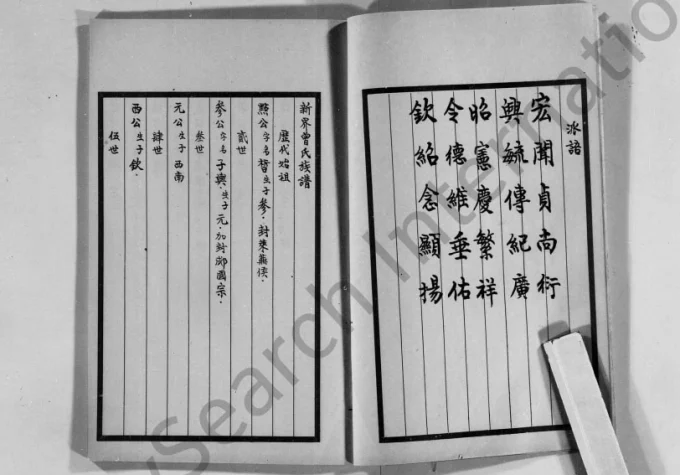 冰語
宏聞貞尚衍
興毓傳紀廣
昭憲慶繁祥
令德維垂佑
欽紹念顯揚
新界曾氏族譜
歷代始祖
點公字名晳生子參·封萊蕪侯·
貳世
參公字名子輿·生子元·加封郕國宗·
叁世
元公生子西南
肆世
西公生子欽·
伍世
Search Internatio